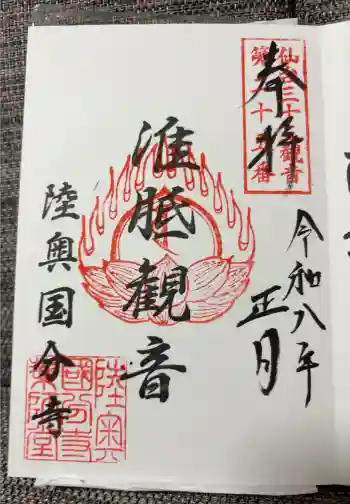 奉拝
仙台三十三観音
第二十五番
令和八年
正月
准胝観音
陸奥国分寺
陸奥
國分寺
薬師堂